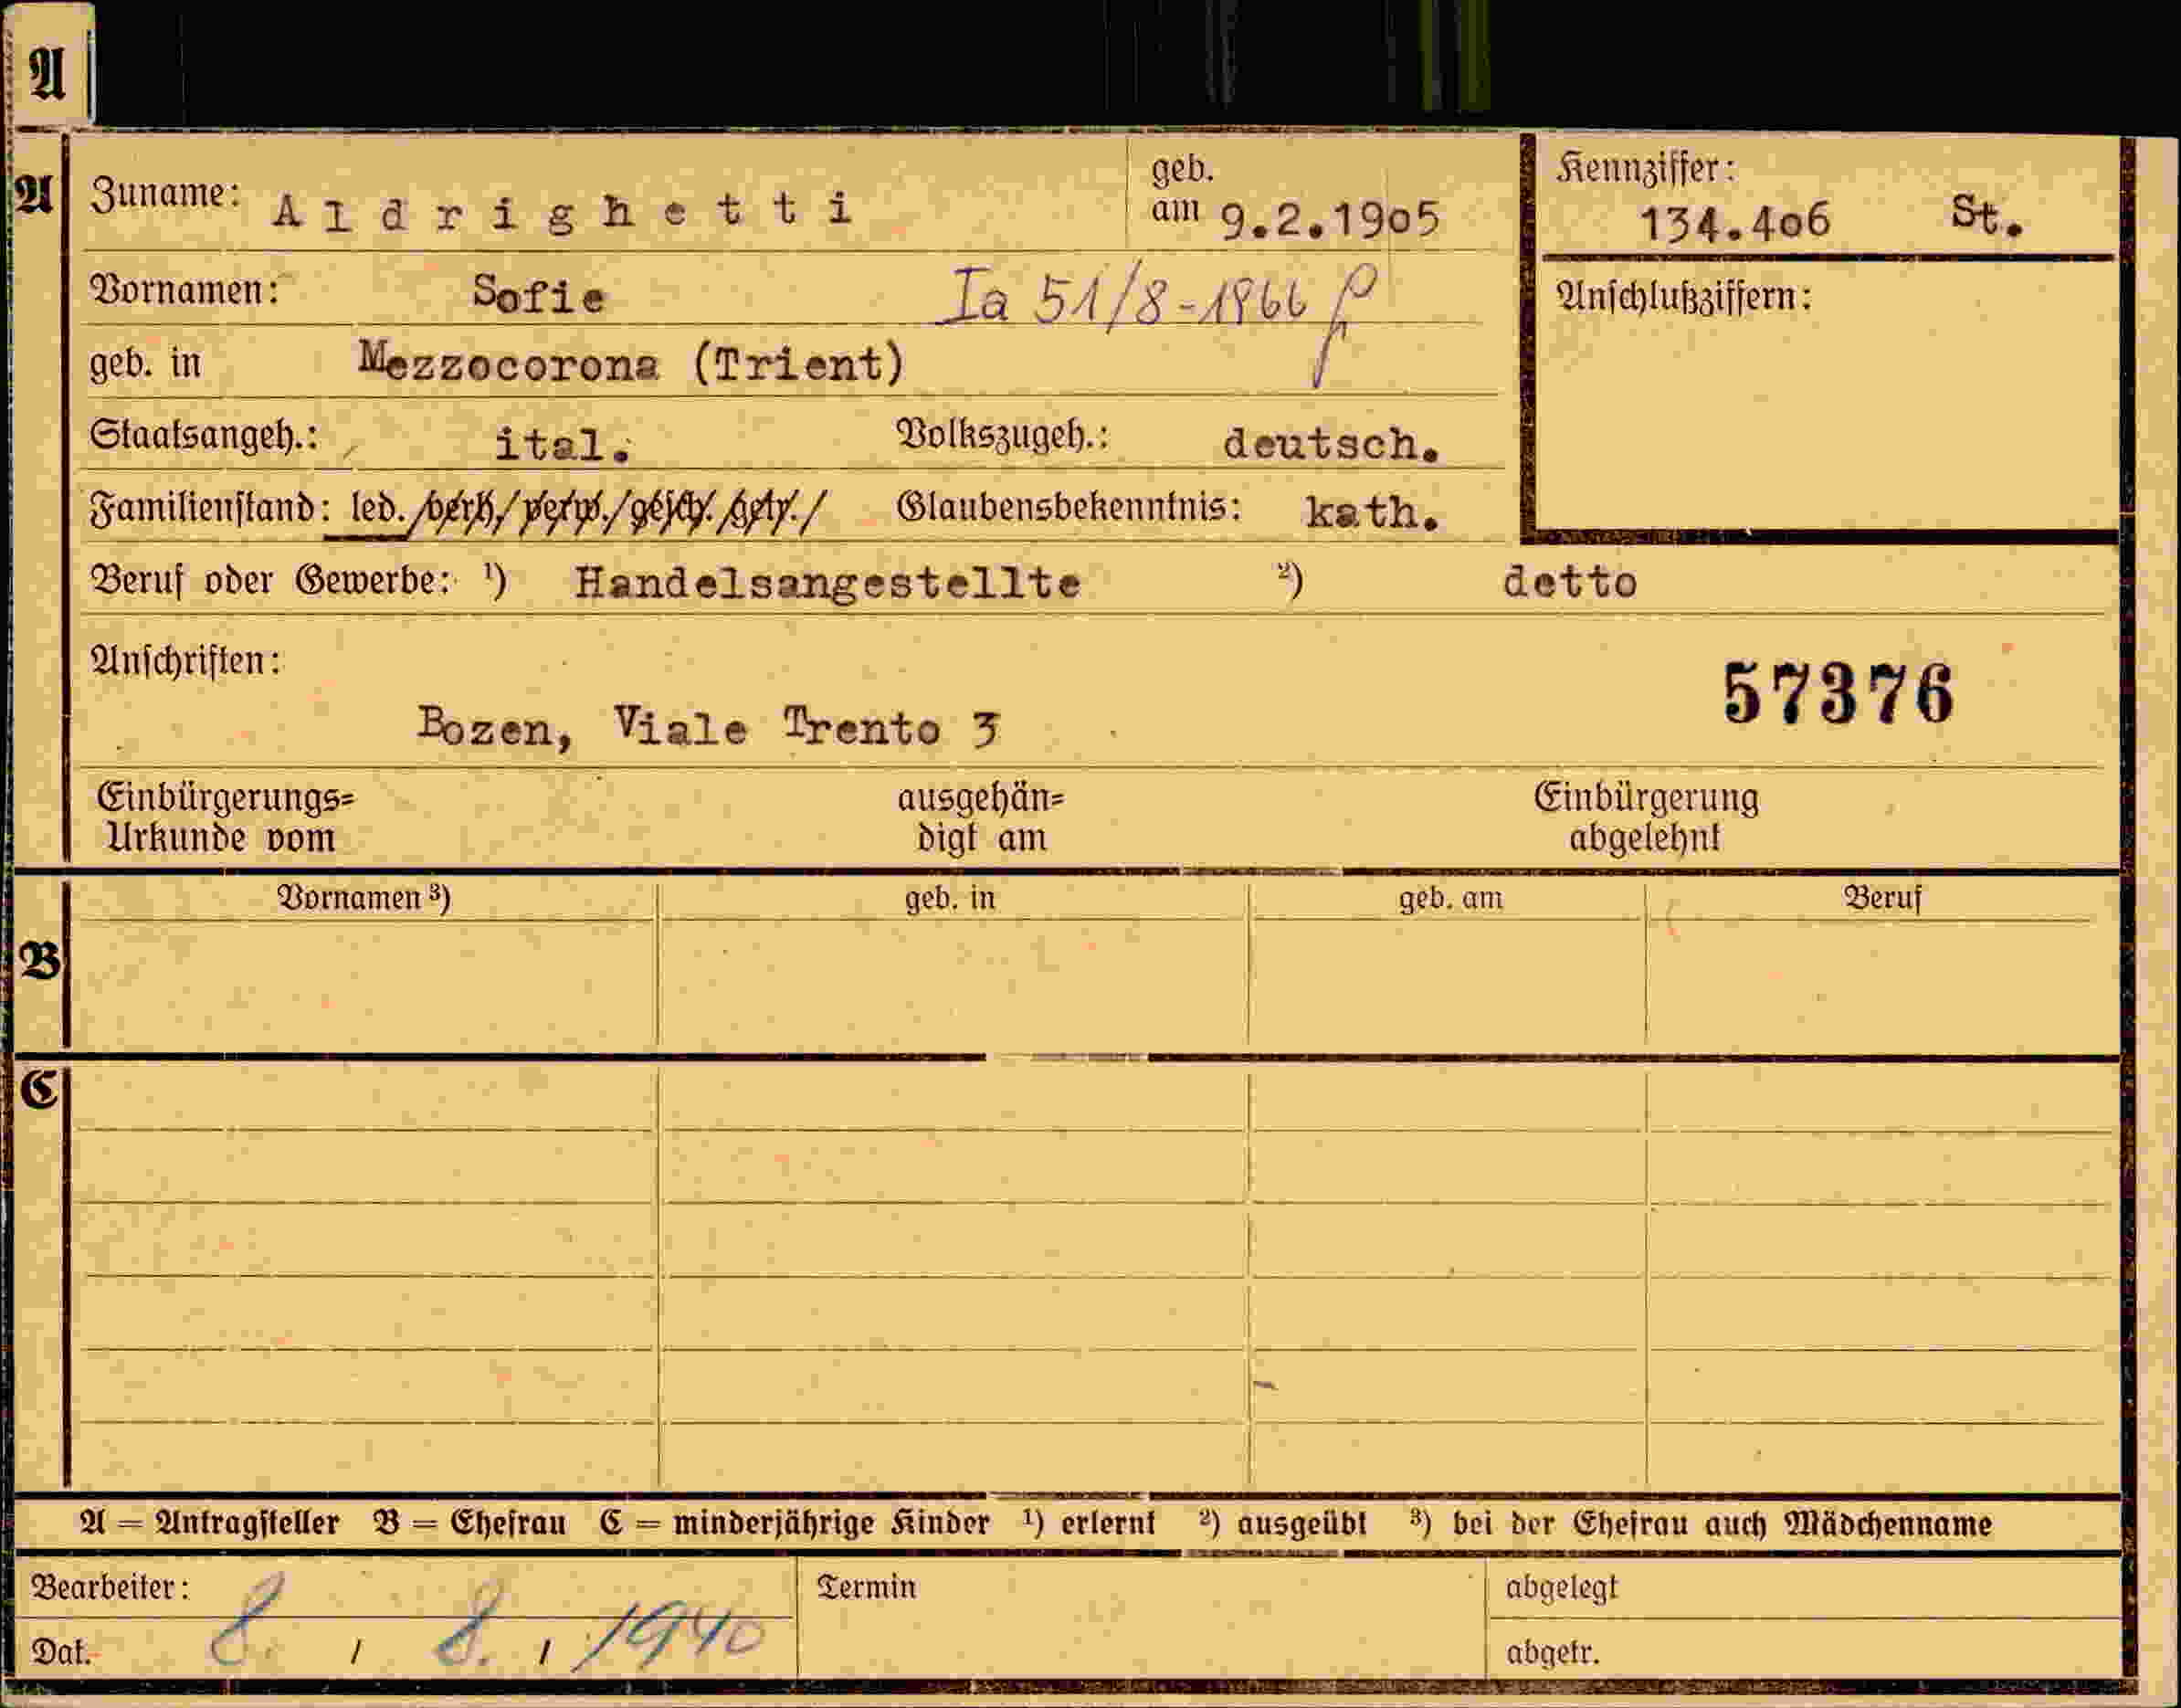 A
A Zuname: Aldrighetti geb. am 9.2.1905 Kennziffer: 134.406 St.
Vornamen: Sofie Ia 51/8-1966 Anschlußziffern:
geb. in Mezzocorona (Trient)
Staatsangeh.: ital. Volkszugeh.: deutsch.
Familienstand: led./verh./verw./gesch./getr./ Glaubensbekenntnis: kath.
Beruf oder Gewerbe: ¹) Handelsangestellte ²) detto
Anschriften: 57376
Bozen, Viale Trento 3
Einbürgerungs= ausgehän= Einbürgerung
Urkunde vom digt am abgelehnt
Vornamen ³) geb. in geb. am Beruf
B
C
A = Antragsteller B = Ehefrau C = minderjährige Kinder ¹) erlernt ²) ausgeübt ³) bei der Ehefrau auch Mädchenname
Bearbeiter: Termin abgelegt
Dat. 8. / 8. / 1940 abgetr.